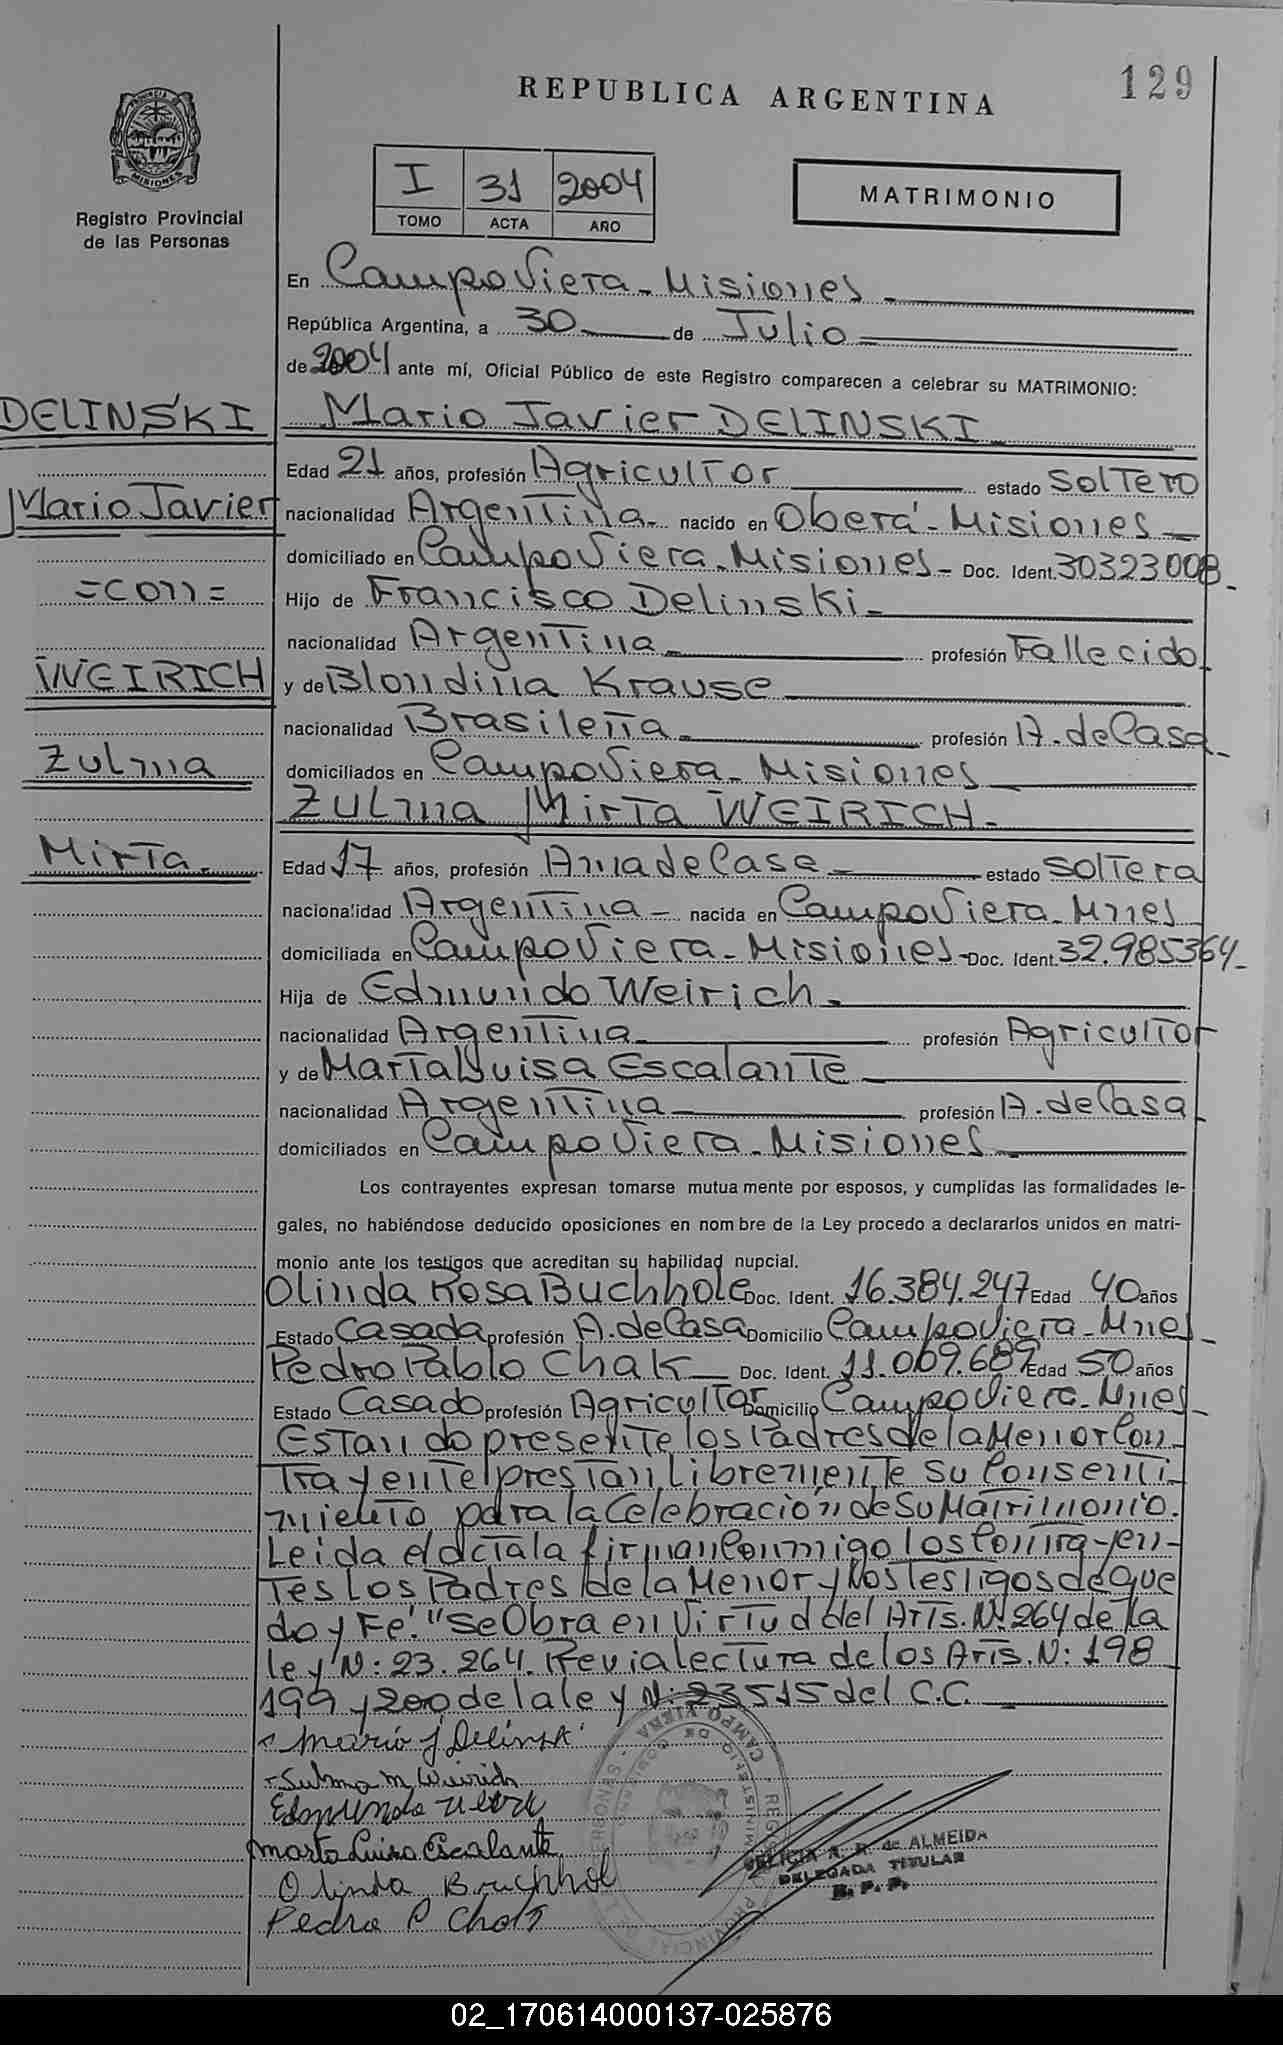 129
REPUBLICA ARGENTINA
PROVINCIA DE
MISIONES
Registro Provincial
de las Personas
I 31 2004
TOMO ACTA AÑO
MATRIMONIO
En Campo Viera - Misiones
República Argentina, a 30 de Julio
de 2004 ante mí, Oficial Público de este Registro comparecen a celebrar su MATRIMONIO:
DELINSKI
Mario Javier
=con=
WEIRICH
Zulma
Mirta.
Mario Javier DELINSKI
Edad 21 años, profesión Agricultor estado Soltero
nacionalidad Argentina nacido en Oberá - Misiones
domiciliado en Campo Viera - Misiones - Doc. Ident. 30323008
Hijo de Francisco Delinski
nacionalidad Argentina profesión Fallecido
y de Blondina Krause
nacionalidad Brasileña profesión A. de Casa
domiciliados en Campo Viera - Misiones
Zulma Mirta WEIRICH
Edad 17 años, profesión Ama de Casa estado Soltera
nacionalidad Argentina - nacida en Campo Viera - Mnes
domiciliada en Campo Viera - Misiones - Doc. Ident. 32.985364
Hija de Edmundo Weirich
nacionalidad Argentina profesión Agricultor
y de Marta Luisa Escalante
nacionalidad Argentina profesión A. de Casa
domiciliados en Campo Viera - Misiones
Los contrayentes expresan tomarse mutua mente por esposos, y cumplidas las formalidades le-
gales, no habiéndose deducido oposiciones en nom bre de la Ley procedo a declararlos unidos en matri-
monio ante los testigos que acreditan su habilidad nupcial.
Olinda Rosa Buchhole Doc. Ident. 16.384.247 Edad 40 años
Estado Casada profesión A. de Casa Domicilio Campo Viera - Mnes
Pedro Pablo Chak Doc. Ident. 11.069.689 Edad 50 años
Estado Casado profesión Agricultor Domicilio Campo Viera - Mnes
Estando presente los Padres de la Menor Con
trayente prestan libremente su Consenti
miento para la Celebración de Su Matrimonio.
Leida el acta la firman Conmigo los Contrayen-
tes los Padres de la Menor y los testigos de que
doy Fe. "Se Obra en Virtud del Arts. N: 264 de la
ley N: 23.264. Previa lectura de los Arts. N: 198
199 y 200 de la ley N: 23515 del C.C.
Mario J Delinski
Sulma M. Weirich
Edmundo
Marta Luisa Escalante
Olinda Buchhol
Pedro P Chak
REGISTRO PROVINCIAL DE LAS PERSONAS - CAMPO VIERA
MINISTERIO DE GOBIERNO
FELICIA A. R. de ALMEIDA
DELEGADA TITULAR
R. P. P.
02_170614000137-025876